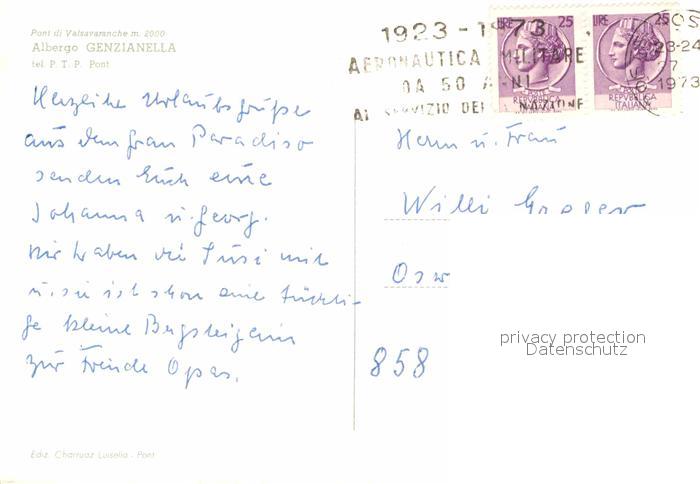 Pont di Valsavaranche m. 2000
Albergo GENZIANELLA
tel. P. T. P. Pont
Herzliche Urlaubsgrüße
aus dem Gran Paradiso
senden Euch eure
Johanna u. Georg.
Wir haben die Susi mit
u. sie ist schon eine tüchti-
ge kleine Bergsteigerin
zur Freude Opas.
Ediz. Charruaz Luiselia - Pont
1923 - 1973
AERONAUTICA MILITARE
DA 50 ANNI
AL SERVIZIO DELLA NAZIONE
LIRE 25
REPVBBLICA
ITALIANA
LIRE 25
REPVBBLICA
ITALIANA
23-24
27
1973
Herrn u. Frau
Willi
858
privacy protection
Datenschutz